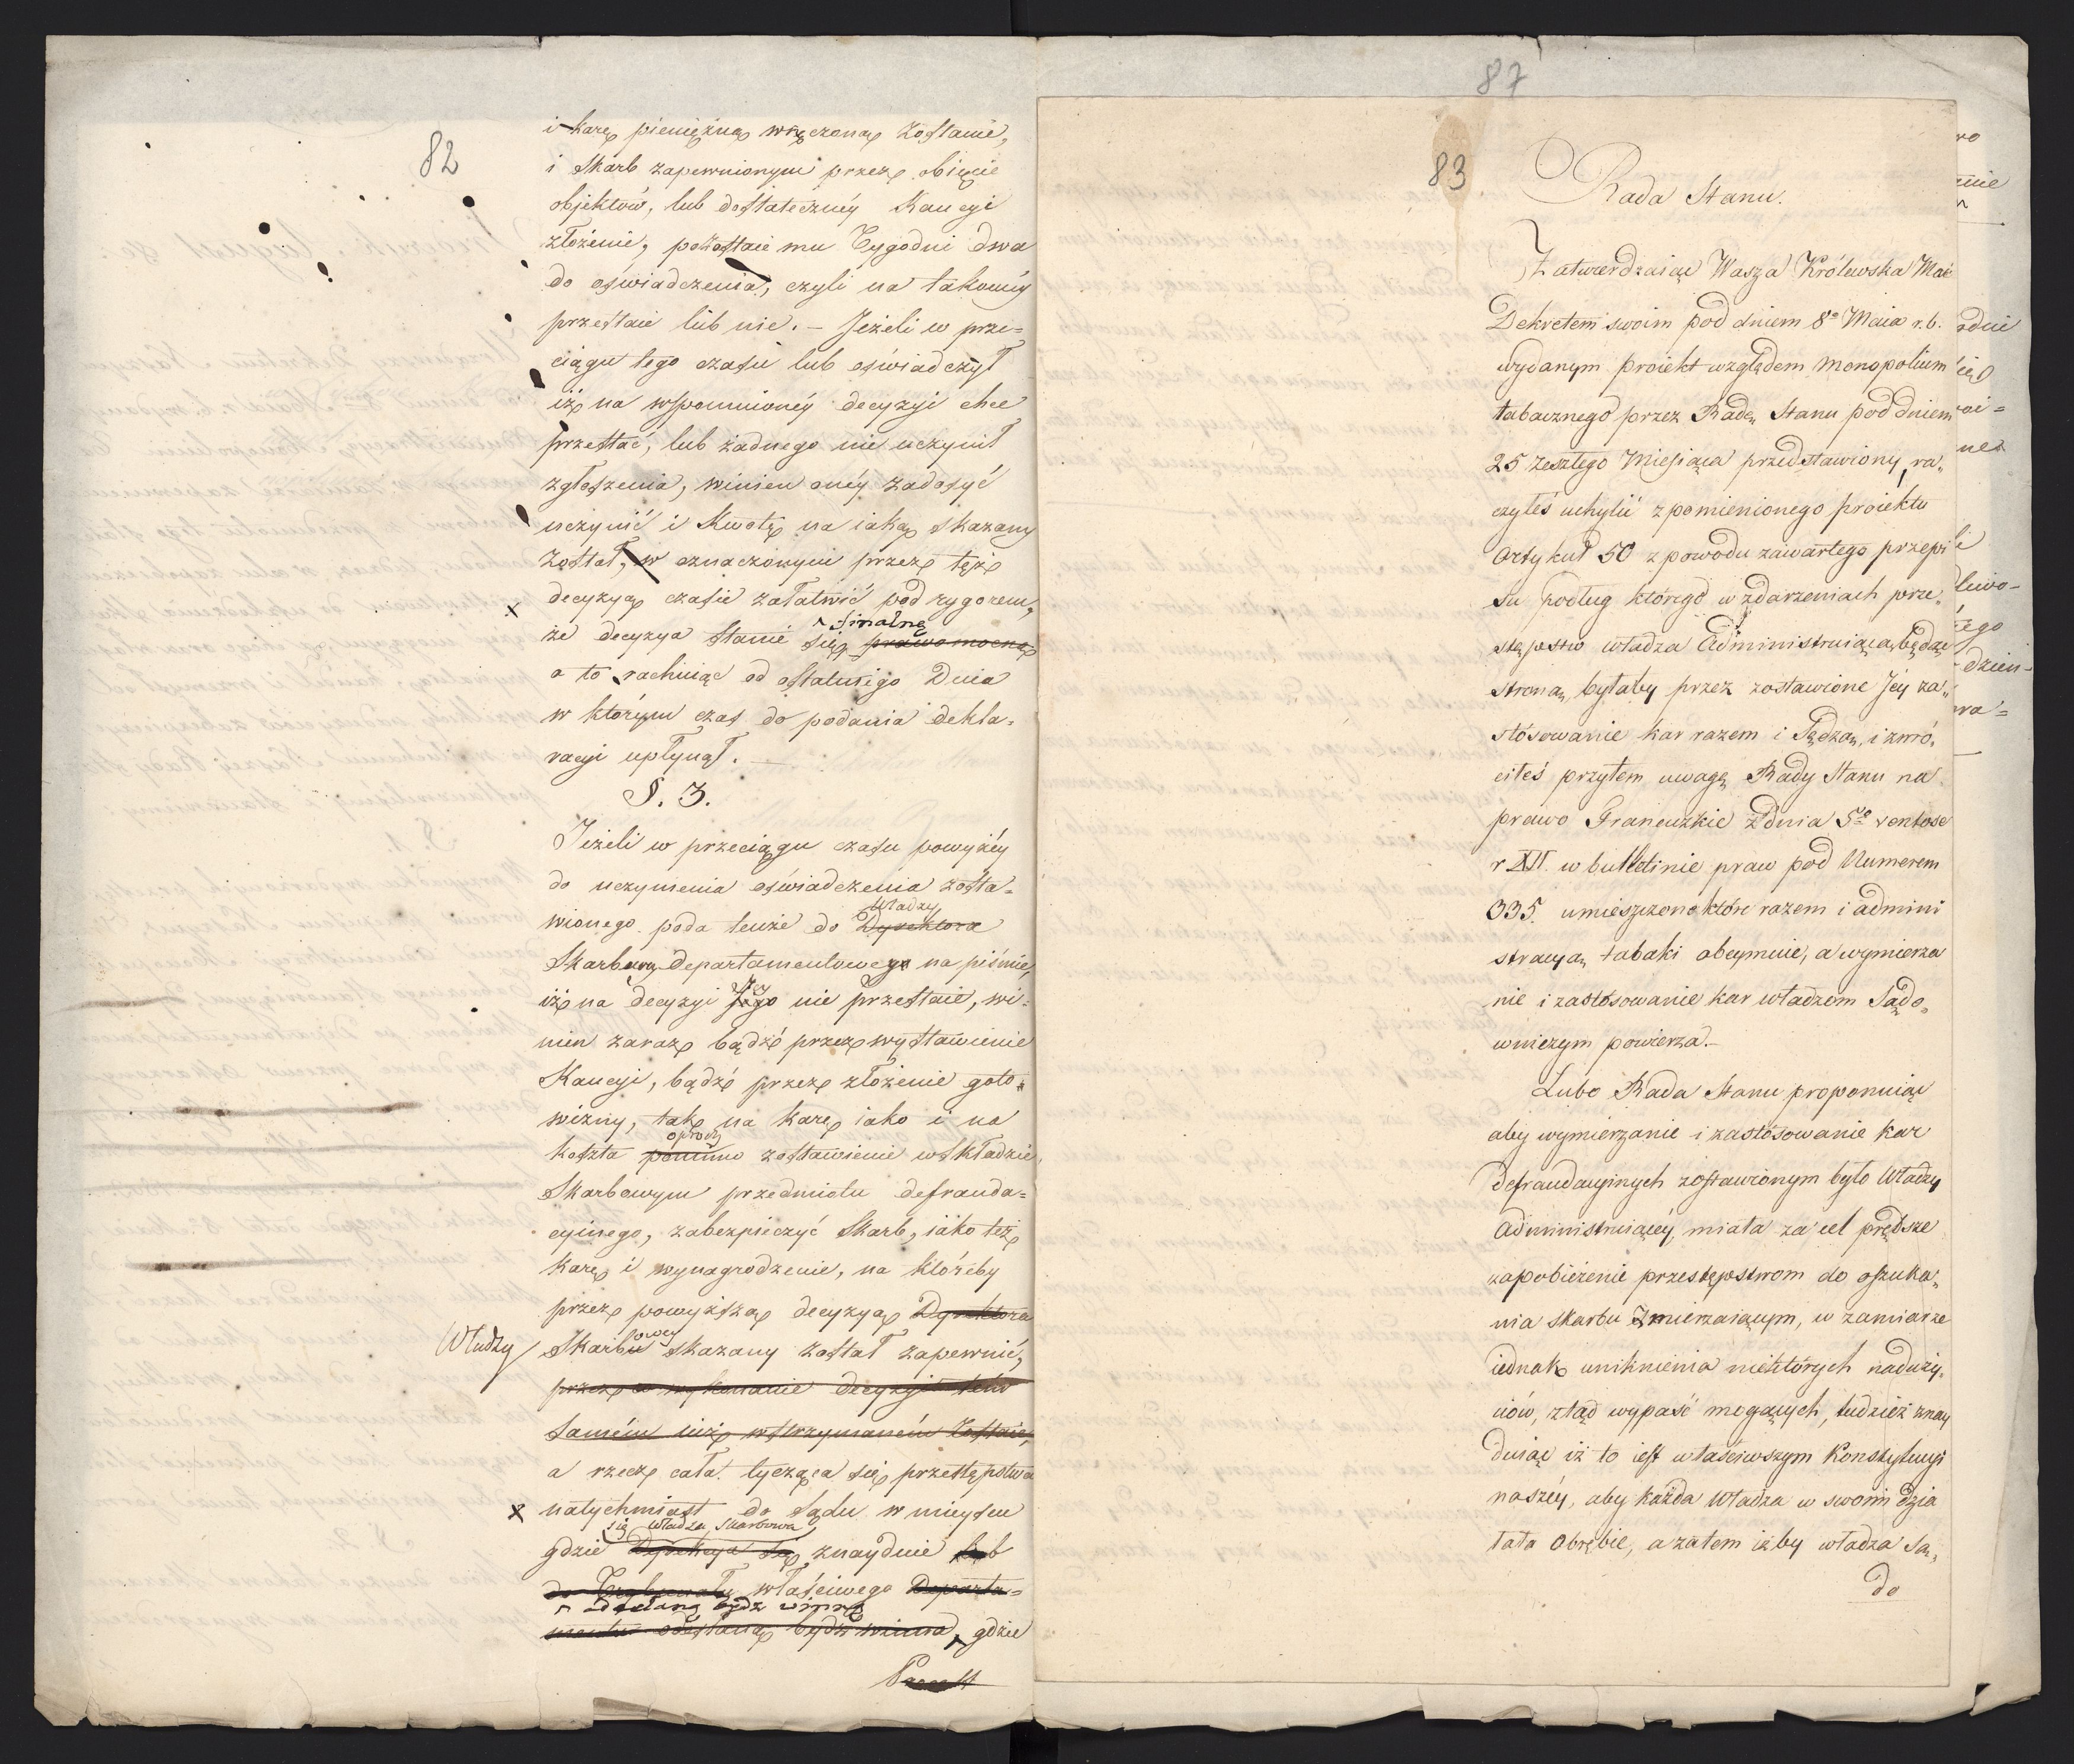 82
i karę pieniężną wręczoną zostanie,
i Skarb zapewnionym przez obięcie
objektów, lub dostateczney Kaucyi
złożenie, pozostaie mu Tygodni dwa
do oświadczenia, czyli na takowéy
przestaie lub nie. – Jeżeli w prze=
ciągu tego czasu lub oświadczył
iż na wspomnionéy decyzyi chce
przestać, lub żadnego nie uczynił
zgłoszenia, winien onéy zadosyć
uczynić i Kwotę na iaką skazany
został, w oznaczonym przez tęż
decyzyą czasie załatwić pod rygorem,
finalną
że decyzya stanie się prawomocną
a to rachuiąc od ostatniego Dnia
w którym czas do podania dekla=
racyi upłynął. —
§. 3.
Jeżeli w przeciągu czasu powyżéy
do uczynienia oświadczenia zosta=
Władzy
wionego poda tenże do Dyrektora
Skarbowey departamentowey na piśmie,
iż na decyzyi Jego nie przestaie, wi=
nien zaraz bądź przez wystawienie
Kaucyi, bądź przez złożenie goto=
wizny, tak na karę iako i na
oprócz
koszta pomimo zostawienie w składzie
Skarbowym przedmiotu defrauda=
cyinego, zabezpieczyć Skarb, iako też
karę i wynagrodzenie, na któreby
przez powyższą decyzyą Dyrektora
Władzy
Skarbowey skazany został zapewnić,
przez co wykonanie decyzyi tém
samém iuż wstrzymaném zostaie,
a rzecz cała tycząca się przestępstwa
natychmiast do Sądu w mieyscu
się Władza Skarbowa
gdzie Dyrekcya się znayduie lub
do Trybunału właściwego Departa=
odesłaną bydź winną
mentu odesłaną bydź winna, gdzie
87
83
Rada Stanu.
Zatwierdzaiąc Wasza Królewska Mość
Dekretem swoim pod dniem 8º Maia r. b.
wydanym proiekt względem monopolium
tabacznego przez Radę Stanu pod dniem
25 zeszłego Miesiąca przedstawiony, ra„
czyłeś uchylić z pomienionego proiektu
Artykuł 50 z powodu zawartego przepi
su podług którego w zdarzeniach prze„
stępstw władza Administruiąca, będąc
Stroną, byłaby przez zostawione Jéy za„
stósowanie kar razem i Sędzą, i zwró„
ciłeś przytem uwagę Rady Stanu na
prawo Francuzkie z dnia 5go ventose
r XII. w bulletinie praw pod Numerem
335. umieszczone które razem i admini
stracyą tabaki obeymuie, a wymierza
nie i zastósowanie kar władzom Sądo„
wniczym powierza. —
Lubo Rada Stanu proponuiąc
aby wymierzanie i zastósowanie kar
defraudacyinych zostawionym było Władzy
Administruiącéy, miała za cel prędsze
zapobieżenie przestępstwom do oszuka„
nia skarbu zmierzaiącym, w zamiarze
iednak uniknienia niektórych naduży„
ciów, ztąd wypaść mogących, tudzież znay
duiąc iż to iest właściwszym Konstytucyi
naszéy, aby każda Władza w swoim dzia
łała Obrębie, a zatem iżby władza Są„
do